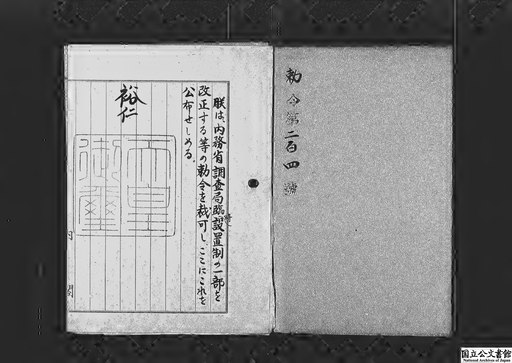 勅令第二百四號
朕は、内務省調査局臨時設置制の一部を
改正する等の勅令を裁可し、ここにこれを
公布せしめる。
裕仁
天皇
御璽
国立公文書館
National Archives of Japan